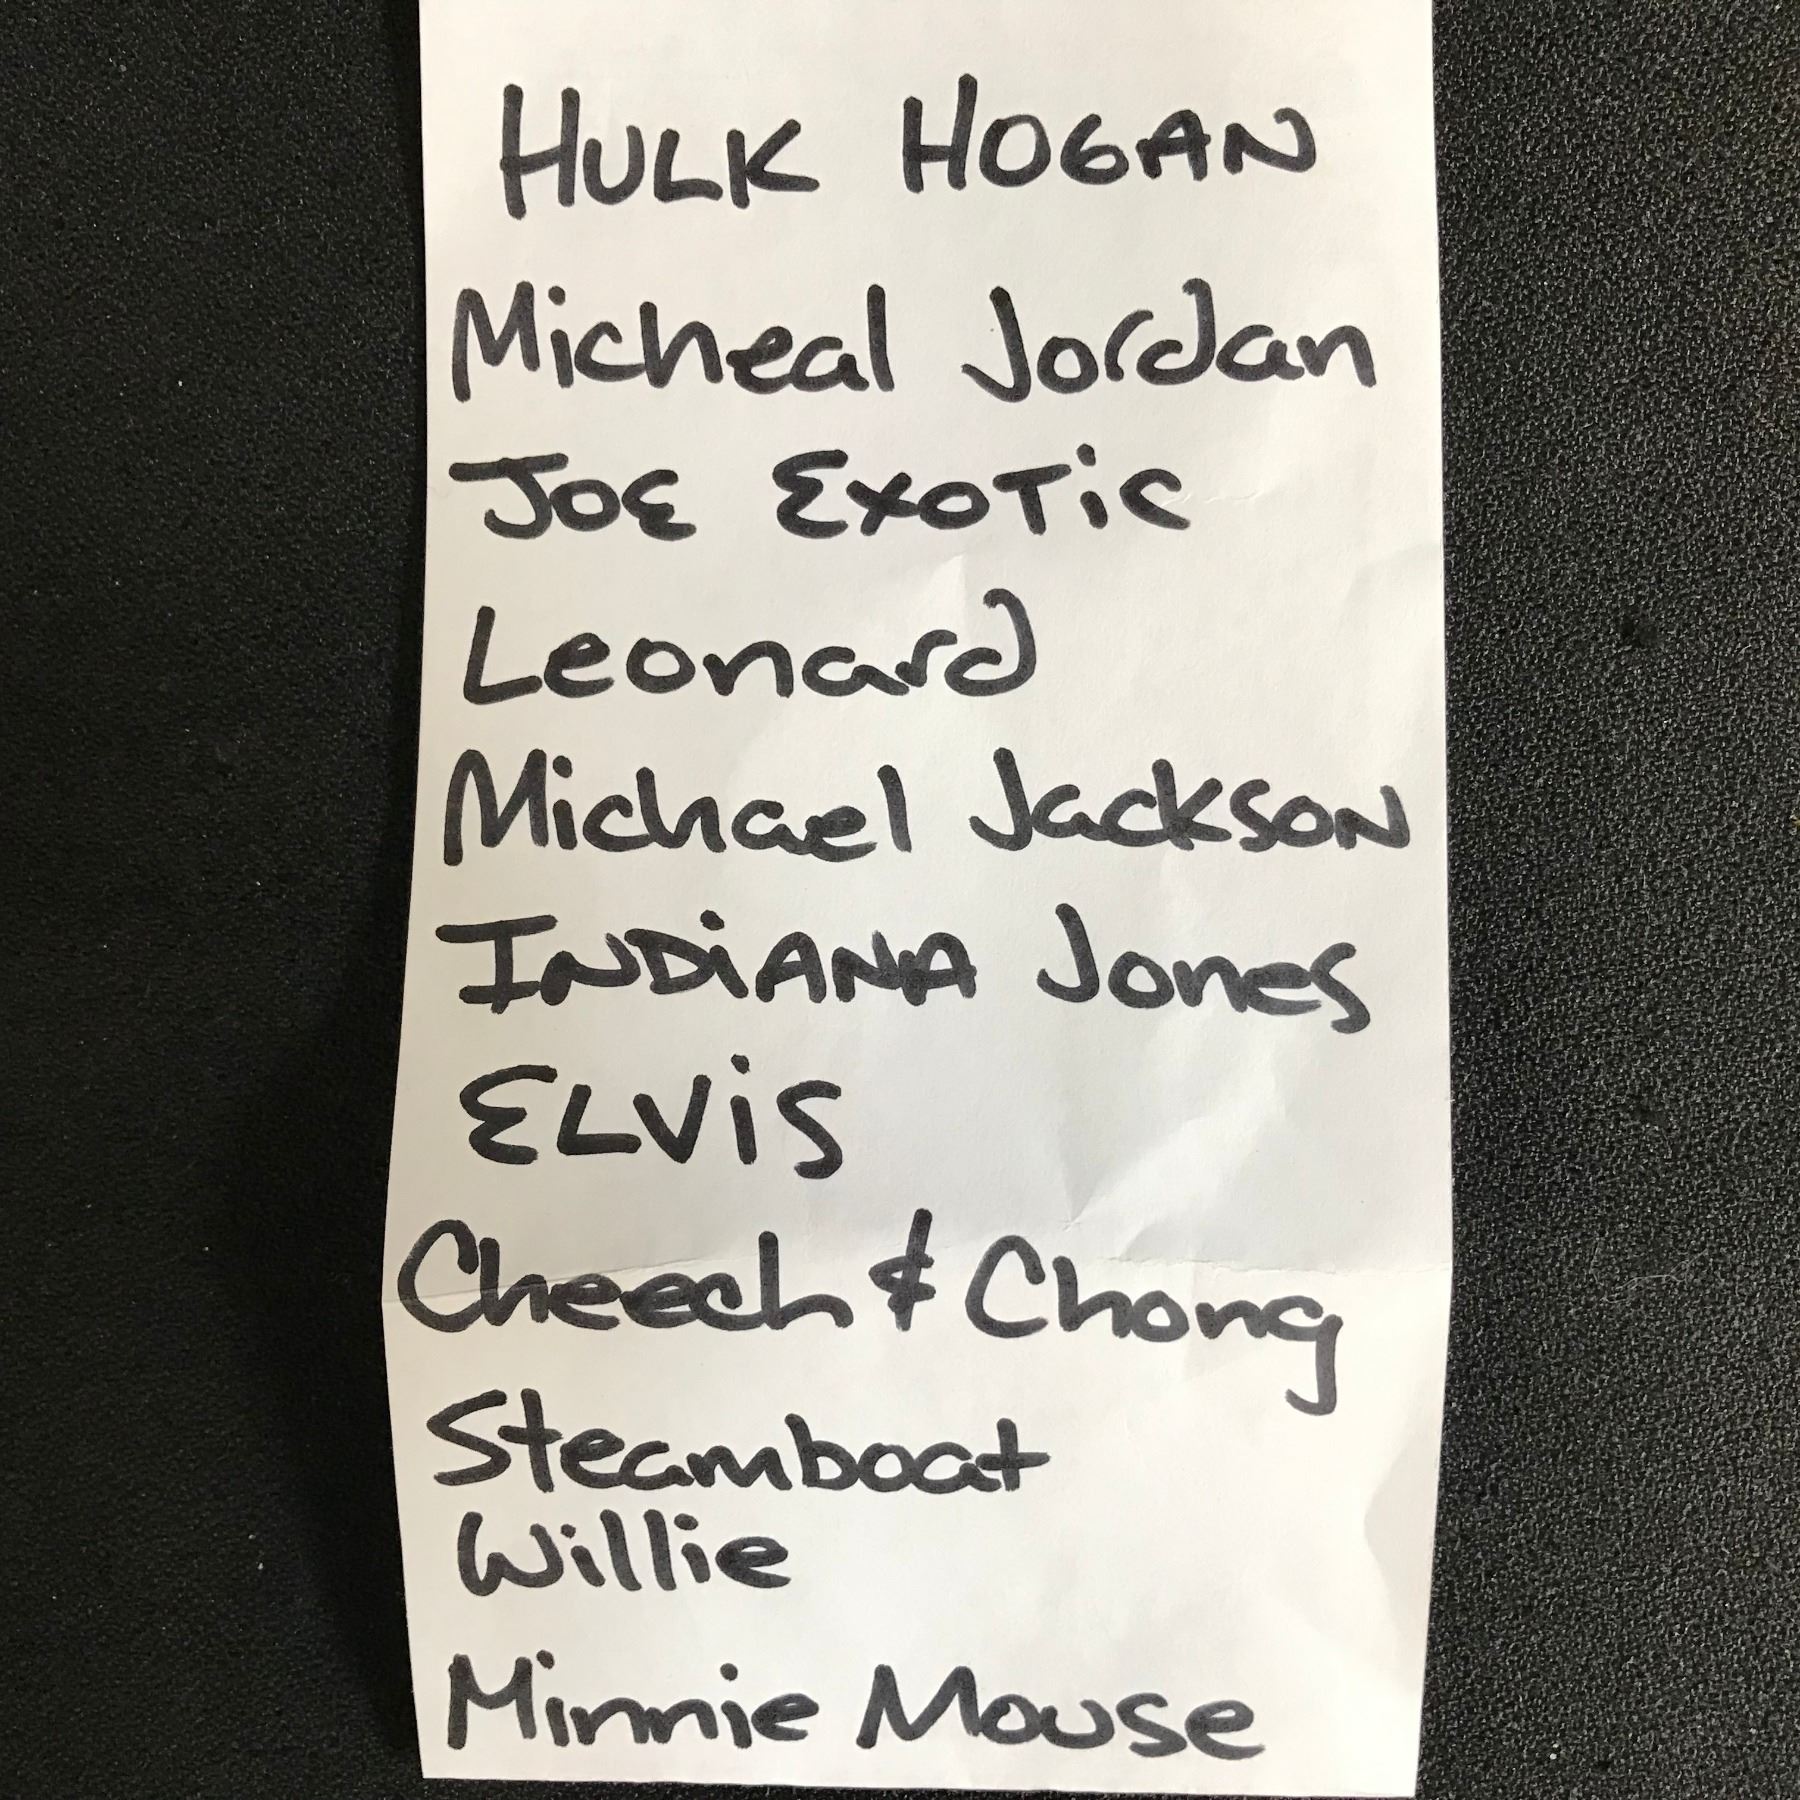 HULK HOGAN
Micheal Jordan
JOE EXOTiC
Leonard
Michael Jackson
INDiANA Jones
ELViS
Cheech & Chong
Steamboat
Willie
Minnie Mouse